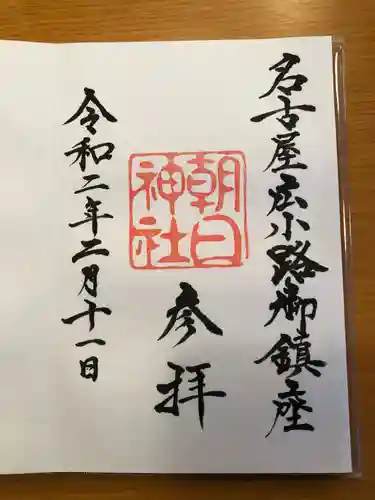 名古屋広小路御鎮座
朝日
神社
参拝
令和二年二月十一日